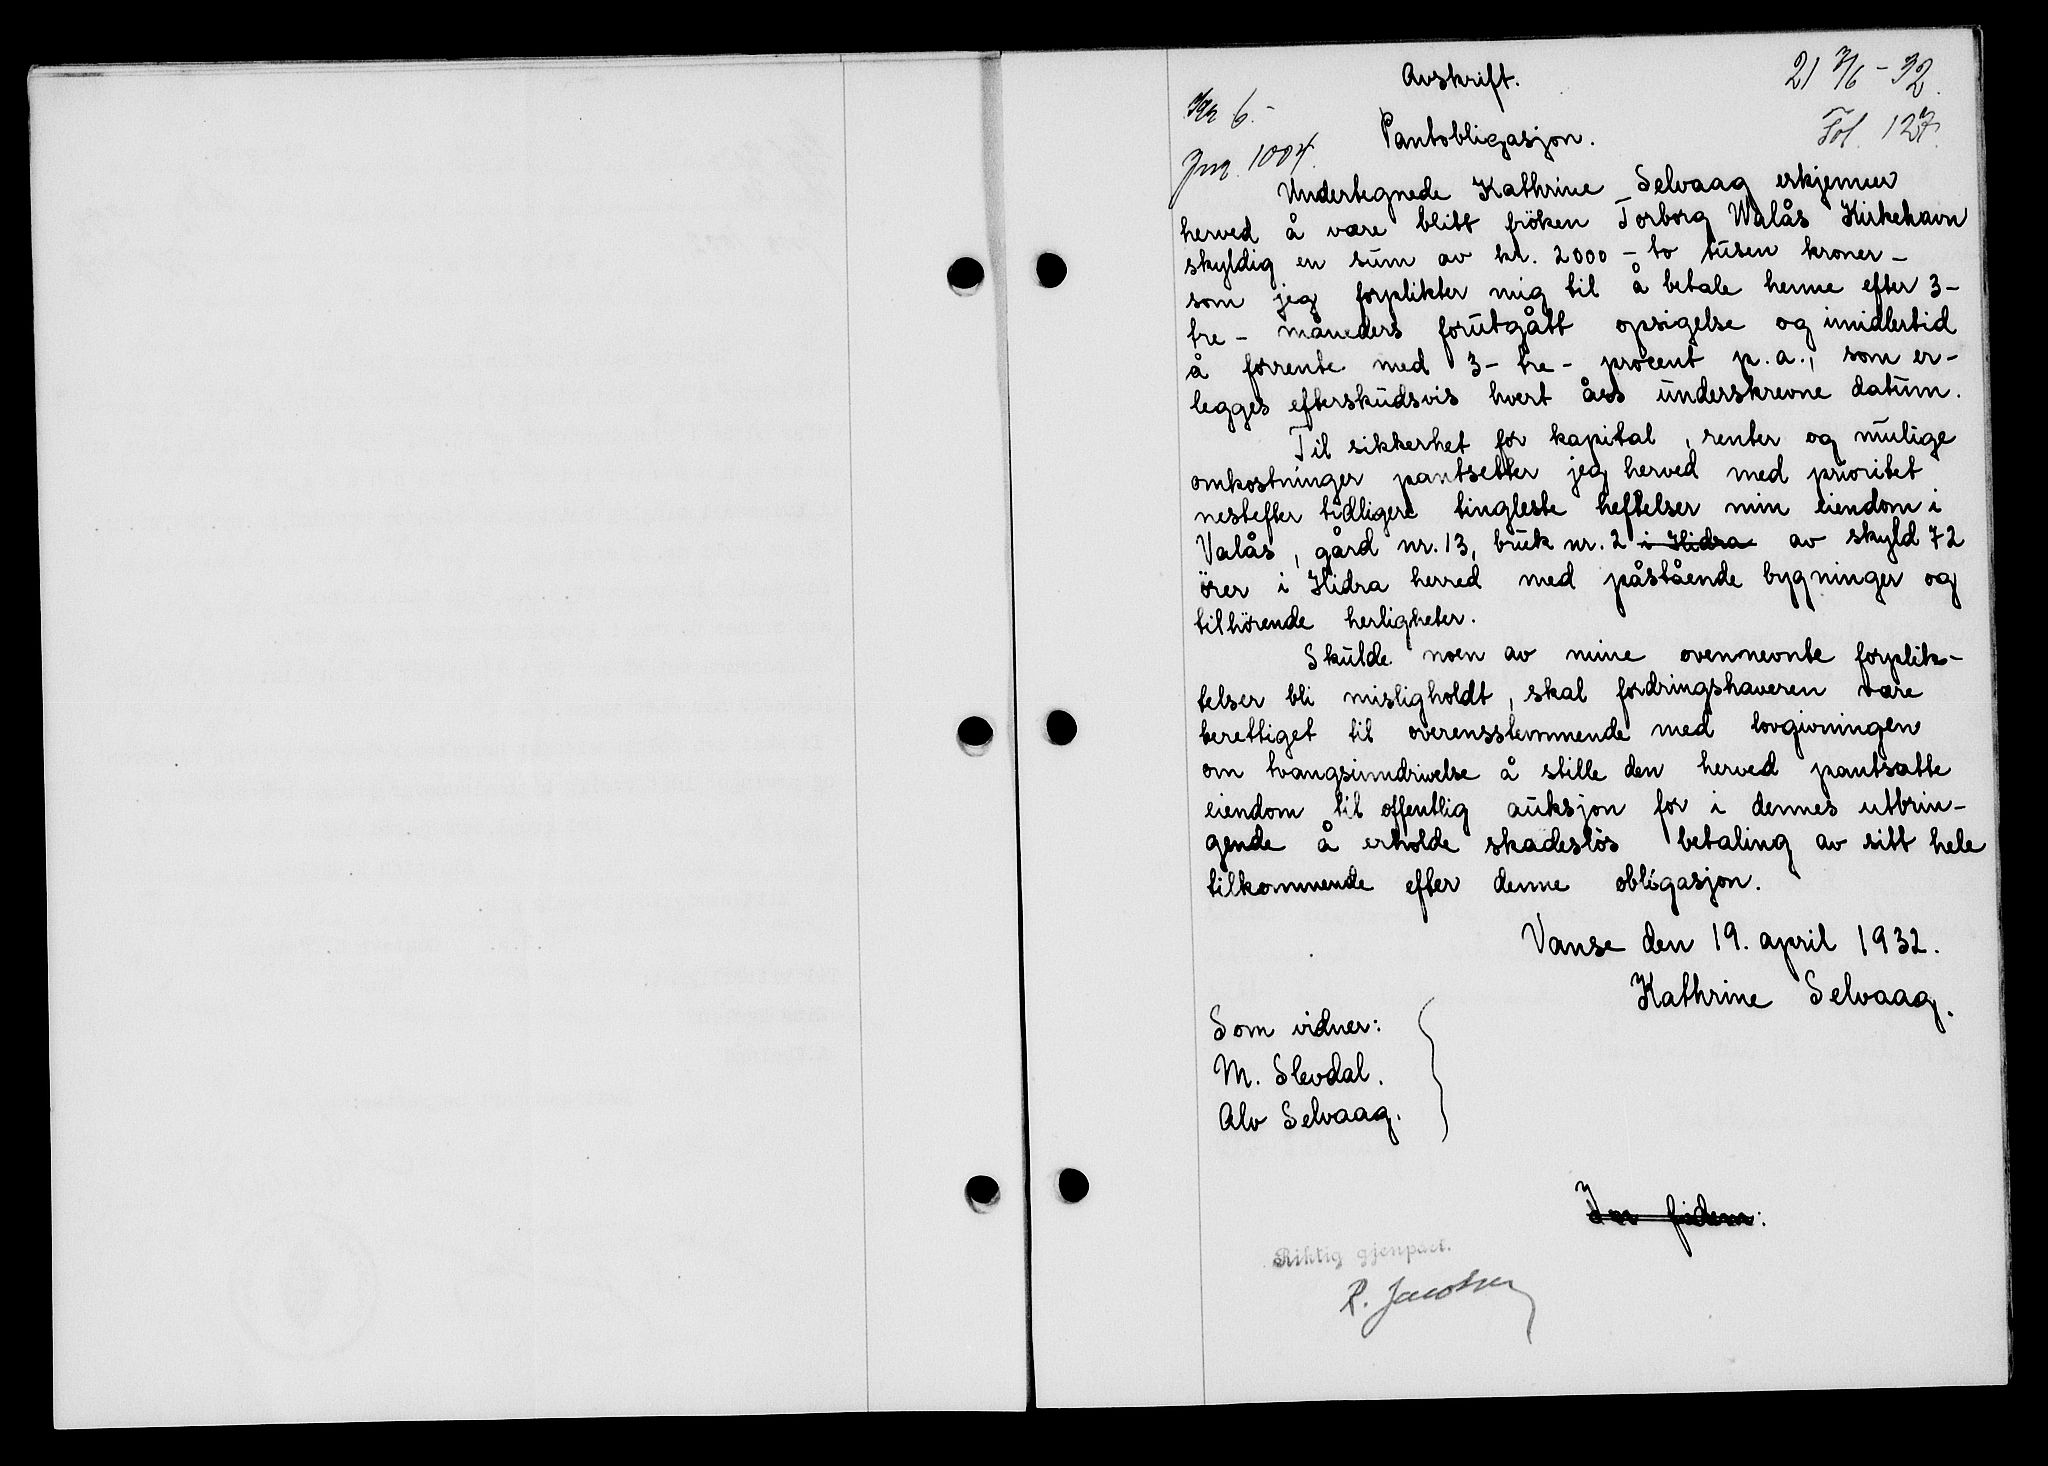 Avskrift.
21 7/6 - 32.
Kr 6.-
Pantobligasjon.
Fol. 127.
Jnr. 1004.
Undertegnede Kathrine Selvaag erkjenner
herved å være blitt fröken Torborg Walås Kirkehavn
skyldig en sum av kr. 2000 - to tusen kroner -
som jeg forplikter mig til å betale henne efter 3-
tre - måneders forutgått opsigelse og imidlertid
å forrente med 3- tre - procent p.a., som er-
legges efterskudsvis hvert års underskrevne datum.
Til sikkerhet for kapital, renter og mulige
omkostninger pantsetter jeg herved med prioritet
nestefter tidligere tingleste heftelser min eiendom i
Valås, gård nr. 13, bruk nr. 2 i Hidra av skyld 72
örer i Hidra herred med påstående bygninger og
tilhörende herligheter.
Skulde noen av mine ovennevnte forplik-
telser bli misligholdt, skal fordringshaveren være
berettiget til overensstemmende med lovgivningen
om tvangsinndrivelse å stille den herved pantsatte
eiendom til offentlig auksjon for i dennes utbrin-
gende å erholde skadeslös betaling av sitt hele
tilkommende efter denne obligasjon.
Vanse den 19. april 1932.
Kathrine Selvaag.
Som vidner:
M. Slevdal.
Alv Selvaag.
In fidem:
Riktig gjenpart.
R. Jacobsen